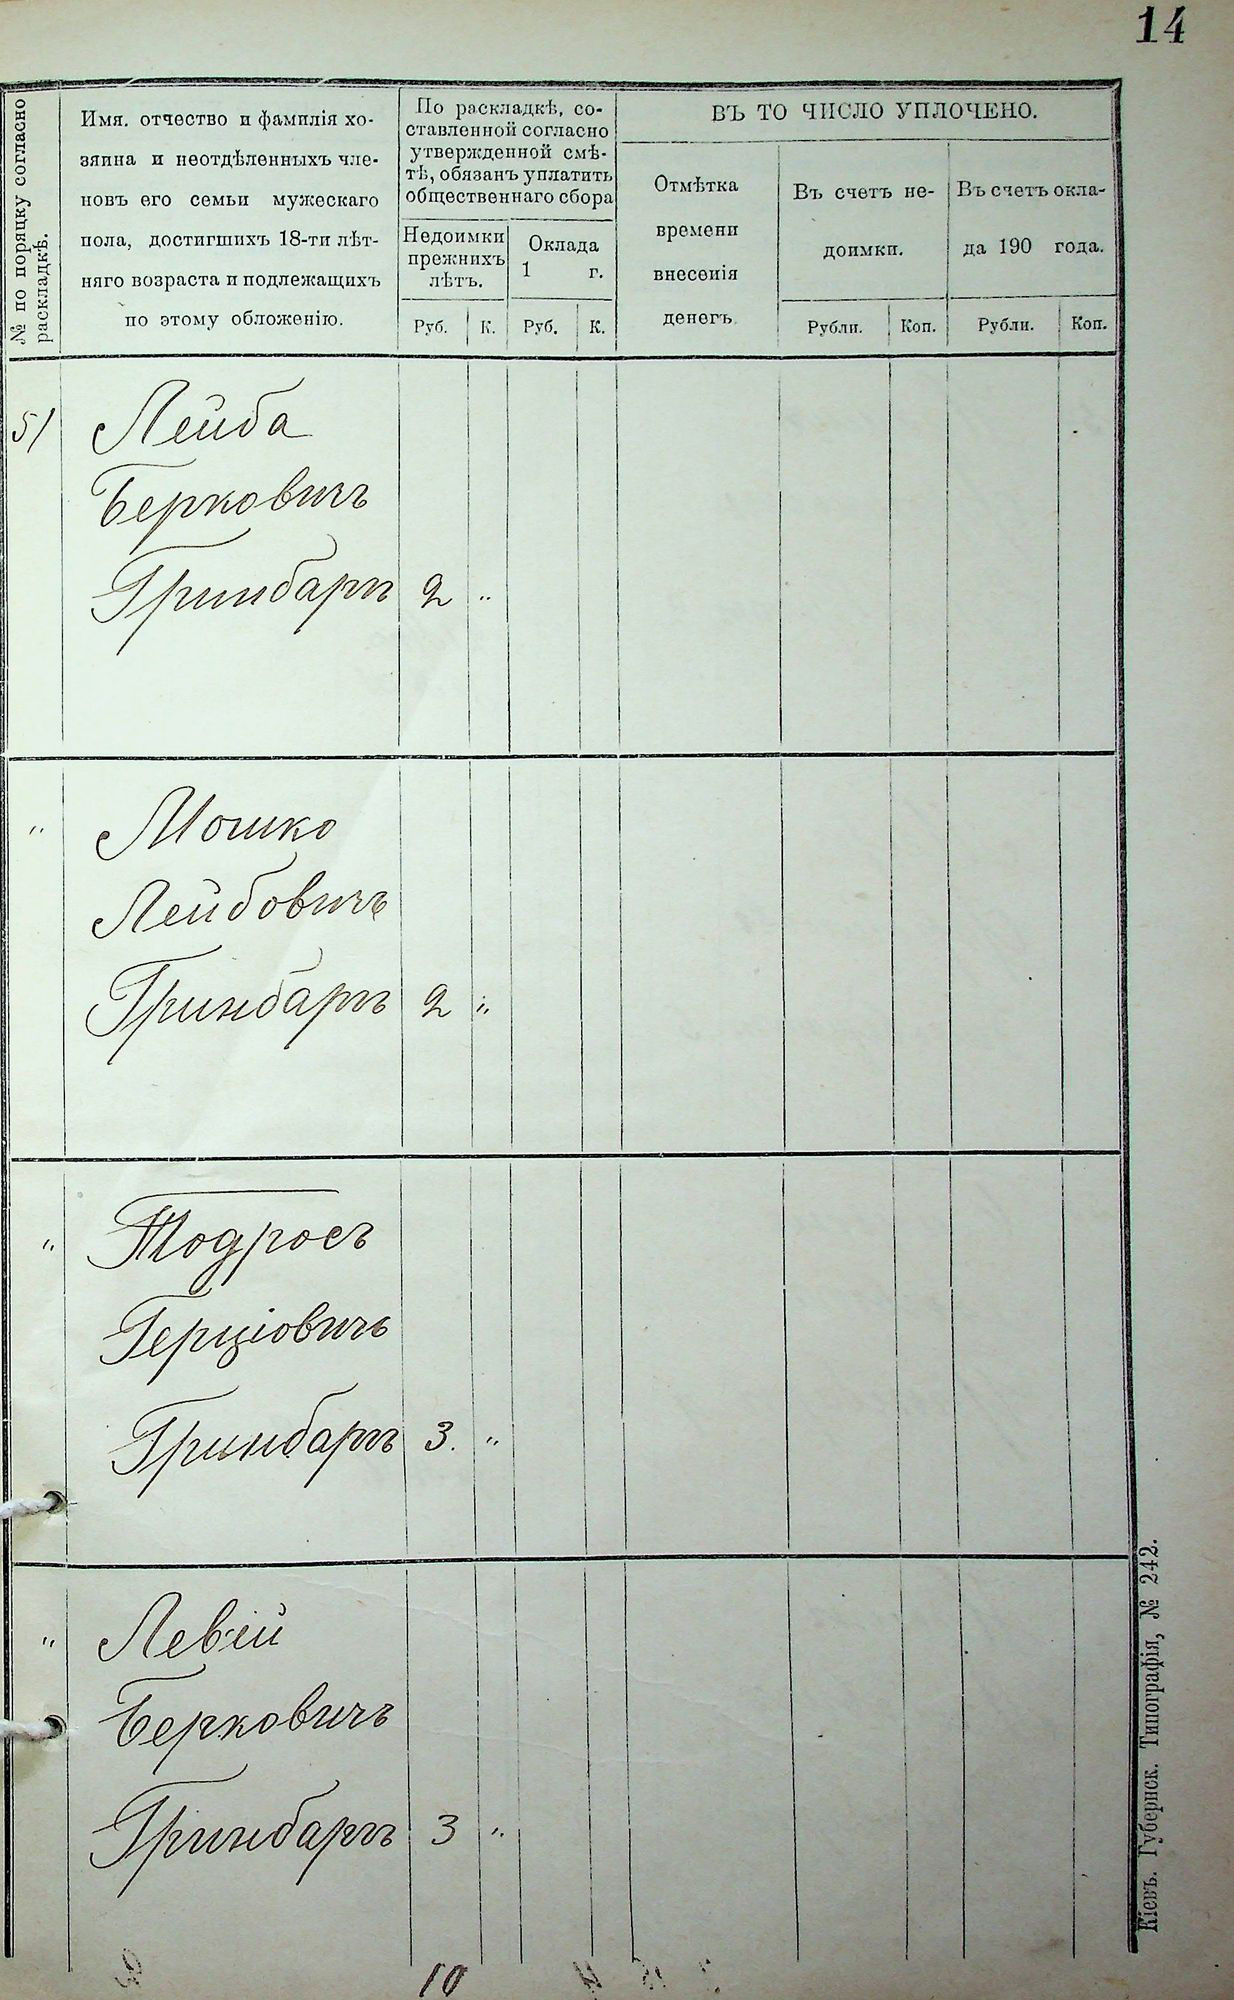 14
№ по поряцку согласно
раскладкѣ.
Имя. отчество и фамилія хо-
зяина и неотдѣленныхъ чле-
новъ его семьи мужескаго
пола, достигшихъ 18-ти лѣт-
няго возраста и подлежащихъ
по этому обложенію.
По раскладкѣ, со-
ставленной согласно
утвержденной смѣ-
тѣ, обязанъ уплатить
общественнаго сбора
Недоимки
прежнихъ
лѣтъ.
Оклада
1 г.
Руб. К. Руб. К.
ВЪ ТО ЧИСЛО УПЛОЧЕНО.
Отмѣтка
времени
внесенія
денегъ
Въ счетъ не-
доимки.
Въ счетъ окла-
да 190 года.
Рубли. Коп. Рубли. Коп.
51 Лейба
Берковичъ
Гринбарп 2 "
" Мошко
Лейбовичъ
Гринбарпъ 2 "
" Тодросъ
Герціовичъ
Гринбарпъ 3. "
" Левій
Берковичъ
Гринбарпъ 3 "
10
Кіевъ. Губернск. Типографія, № 242.